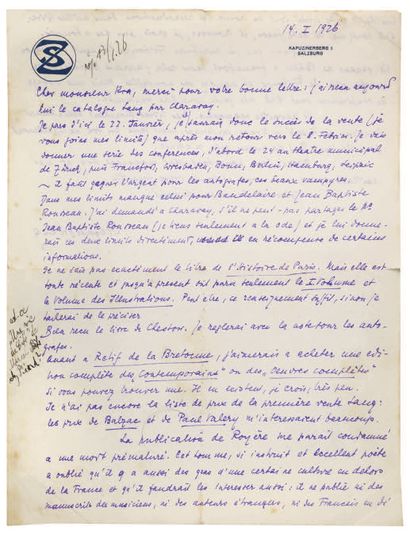 14. I 1926
SZ
KAPUZINERBERG 5
SALZBURG
Cher monsieur merci pour votre bonne lettre: j'ai reçu aujourd'
hui le catalogue Lang par Charavay.
Je pars d'ici le 22. Janvier, je saurais donc le succès de la vente (je
vous joins mes limites) que après mon retour vers le 8. Fevrier. Je vais
donner une serie des conferences, d'abord le 24 au théatre municipal
de puis Francfort, Wiesbaden, Bonn, Berlin, Hamburg,
il faut gagner l'argent pour les autografes, ces beaux vampyres.
Dans mes limites manque celui pour Baudelaire et Jean Baptiste
Rousseau. J'ai demandé a Charavay, s'il ne peut pas partager le No
Jean Baptiste Rousseau (je tiens seulement a la ode) et je lui donne-
rais en deux limites en récompense de certaines
informations.
Je ne sais pas exactement le titre de l'Histoire de Paris. Mais elle est
toute récente et jusqu'a présent ont paru seulement le I Volume et
le Volume des Illustrations. Peut être, ce renseignement suffit, sinon je
tacherai de le préciser
Bien reçu le livre de je reglerai avec la note sur les auto-
grafes.
Quant a Retif de la Bretonne, j'aimerais a acheter une edi-
tion complète des Contemporaines ou des Oeuvres complètes
si vous pouvez trouver une. Il en existent, je crois, très peu.
Je n'ai pas encore la liste de prix de la première vente Lang:
les prix de Balzac et de Paul Valery m'interessaient beaucoup.
La publication de Royère me parait condamné
a une mort prématuré. Cet homme, si instruit et excellent poète
a oublié qu'il y a aussi des gens d'une certaine culture en dehors
de la France et qu'il faudrait les intéresser aussi: il ne publie ni des
manuscrits des musiciens, ni des auteurs étrangers, ni des Francais en